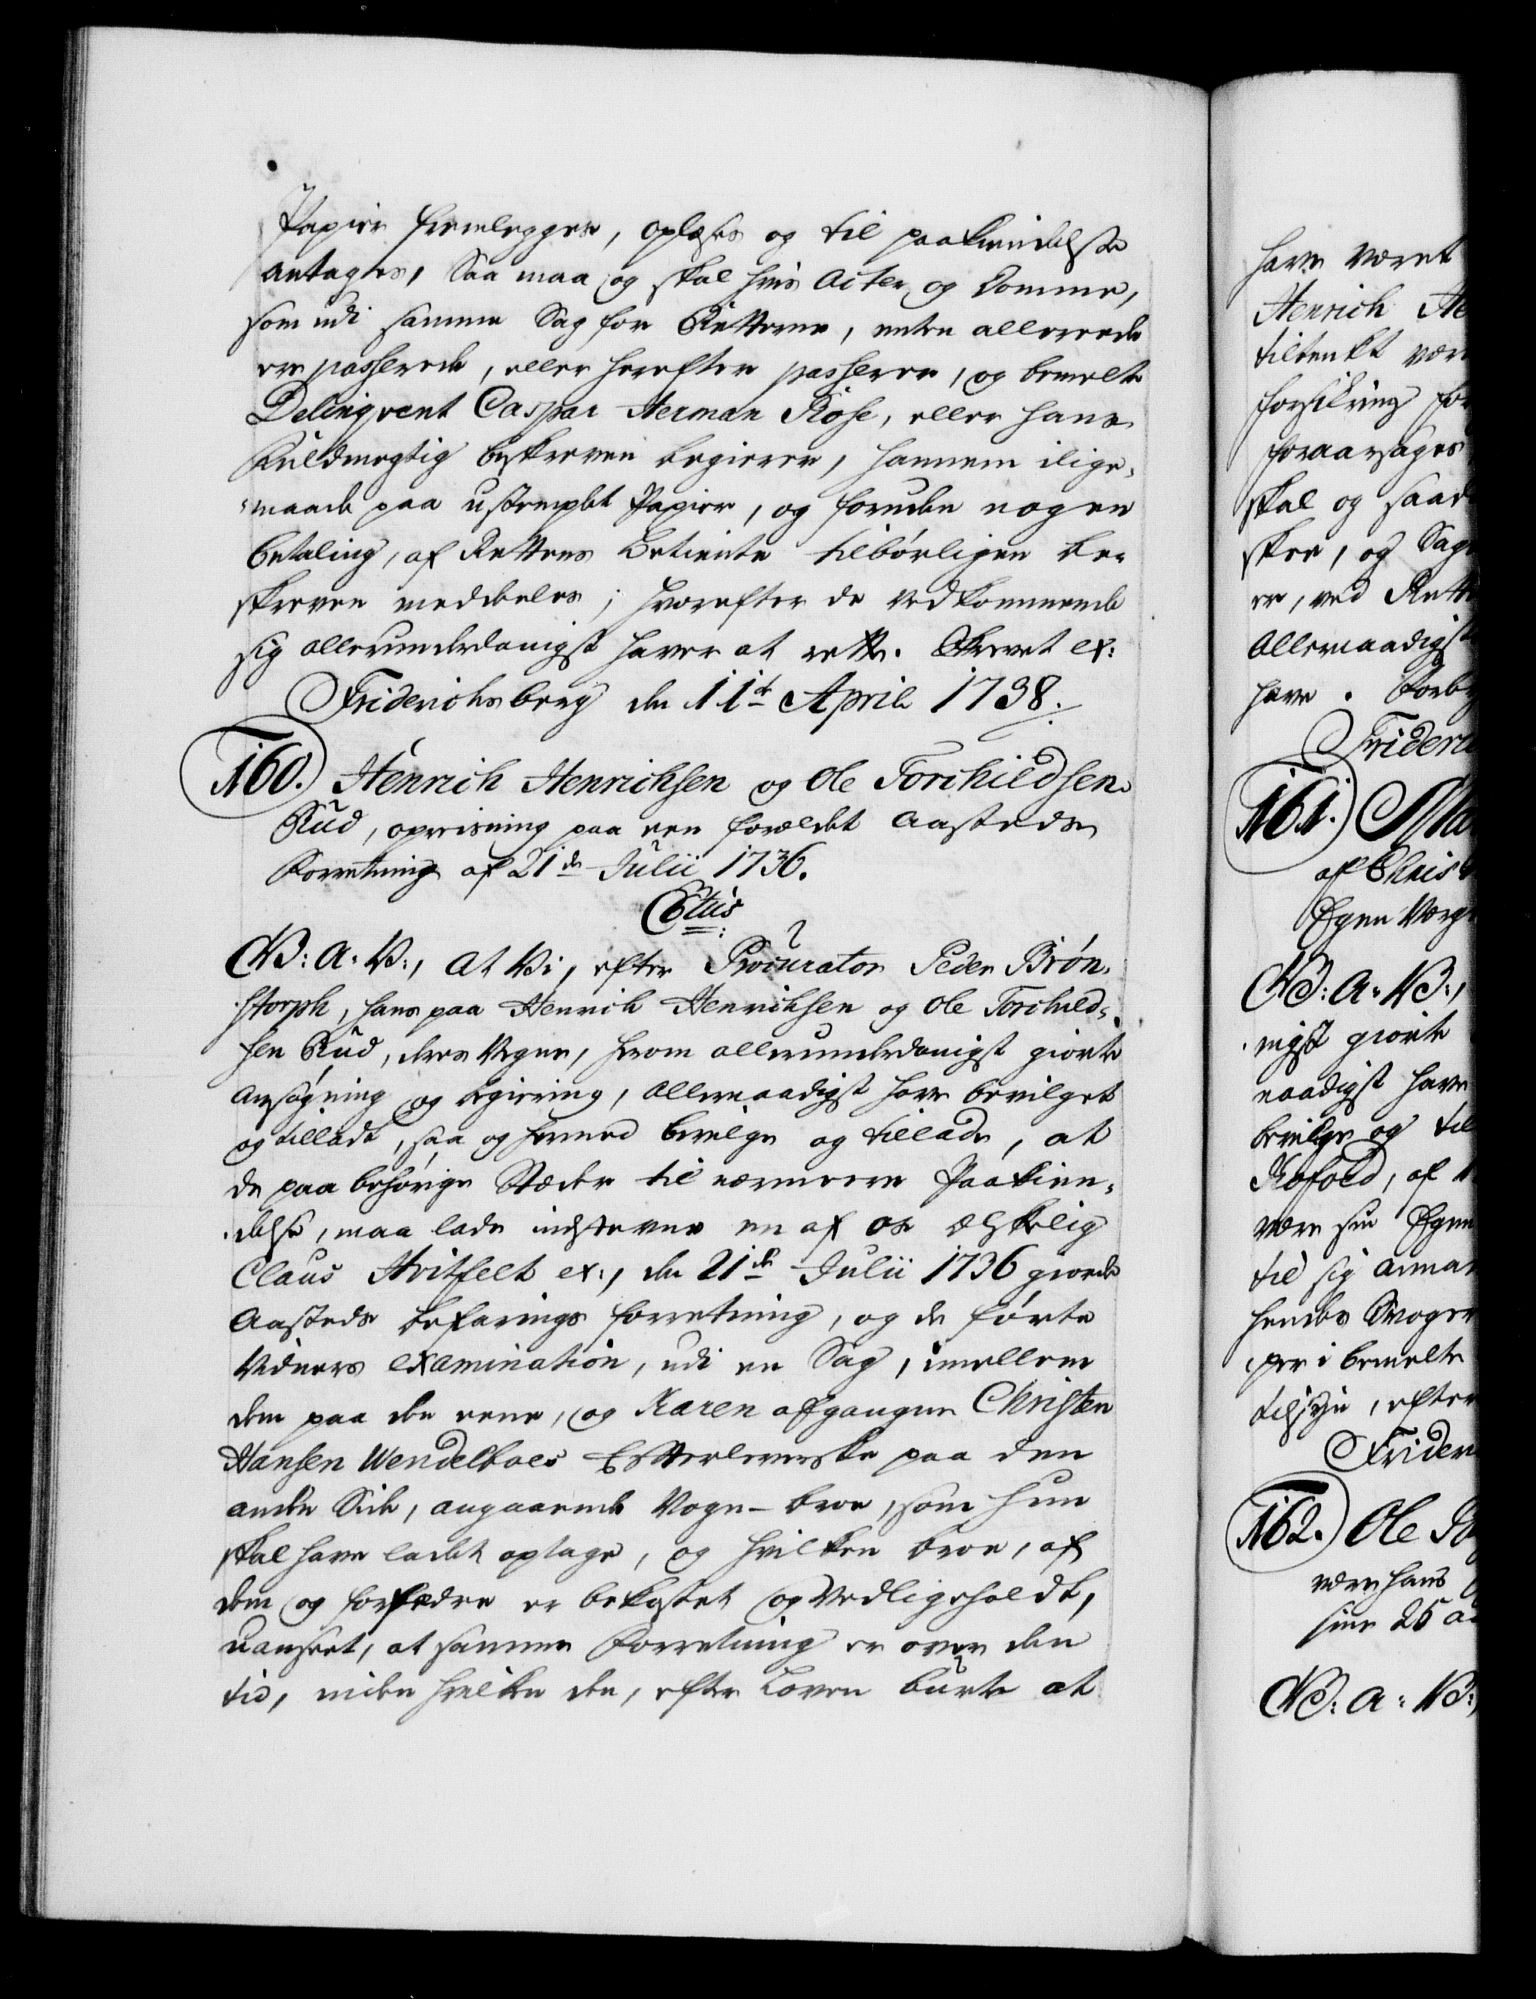 Papiir fremlegges, oplæses og til paakiendelse
antages, Saa maa og skal hvis Acter og Domme,
som udi samme Sag for Retterne, enten allereede
ere passerede, eller herefter passerer, og bemelte
Delinqvent Caspar Herman Rose, eller hans
Fuldmegtig beskreven begierer, hannem ilige-
maade paa ustemplet Papiir, og foruden nogen
betaling, af Rettens betiente tilbørligen be-
skreven meddeeles; hvorefter de vedkommende
sig allerunderdanigst haver at rette. Skrevet ex:
Friderichsberg den 11te April 1738.
160. Henrich Henrichsen og Ole Torchildsen
Rud, opreisning paa een forældet Aasteds
Forretning af 21de Julii 1736.
C6tus
V: A: V:, At Vi, efter Procurator Peder Brøn-
storph, hans paa Henrich Henrichsen og Ole Torchild-
sen Rud, deres Vegne, herom allerunderdanigst giorte
Ansøgning og begiering, allernaadigst have bevilget
og tilladt, saa og hermed bevilge og tillade, at
de paa behørige Stæder til nærmere Paakien-
delse, maa lade indstevne en af os Elskelig
Claus Hvitfelt ex:, den 21de Julii 1736 giorde
Aasteds befarings forretning, og de førte
Vidners examination, udi en Sag, imellem
dem paa den eene, og Karen afgangne Christen
Hansen Wendelboes Efterleverske paa den
anden Side, angaaende Vogn-broe, som hun
skal have ladet optage, og hvilken broe, af
dem og forfædre er bekostet og vedligeholdt,
uanseet, at samme Forretning er over den
tid, inden hvilken den, efter Loven burte at
have været
Henrich He
tiltenkt vær
forsikring for
foraarsages
skal og saad
skee, og Sag
er, ved Rett
Allernaadigst
have. Forby
Frideri
161. Ma
af Christ
Egen Verge
V: A: V:,
nigst giorte
naadigst have
bevilge og til
Kofoed, af
være sin Egen
til sig anna
hendes Svoger
per i bemelte
tilsyn, efter
Frider
162. Ole
være hans
sine 25 a
V: A: V:,